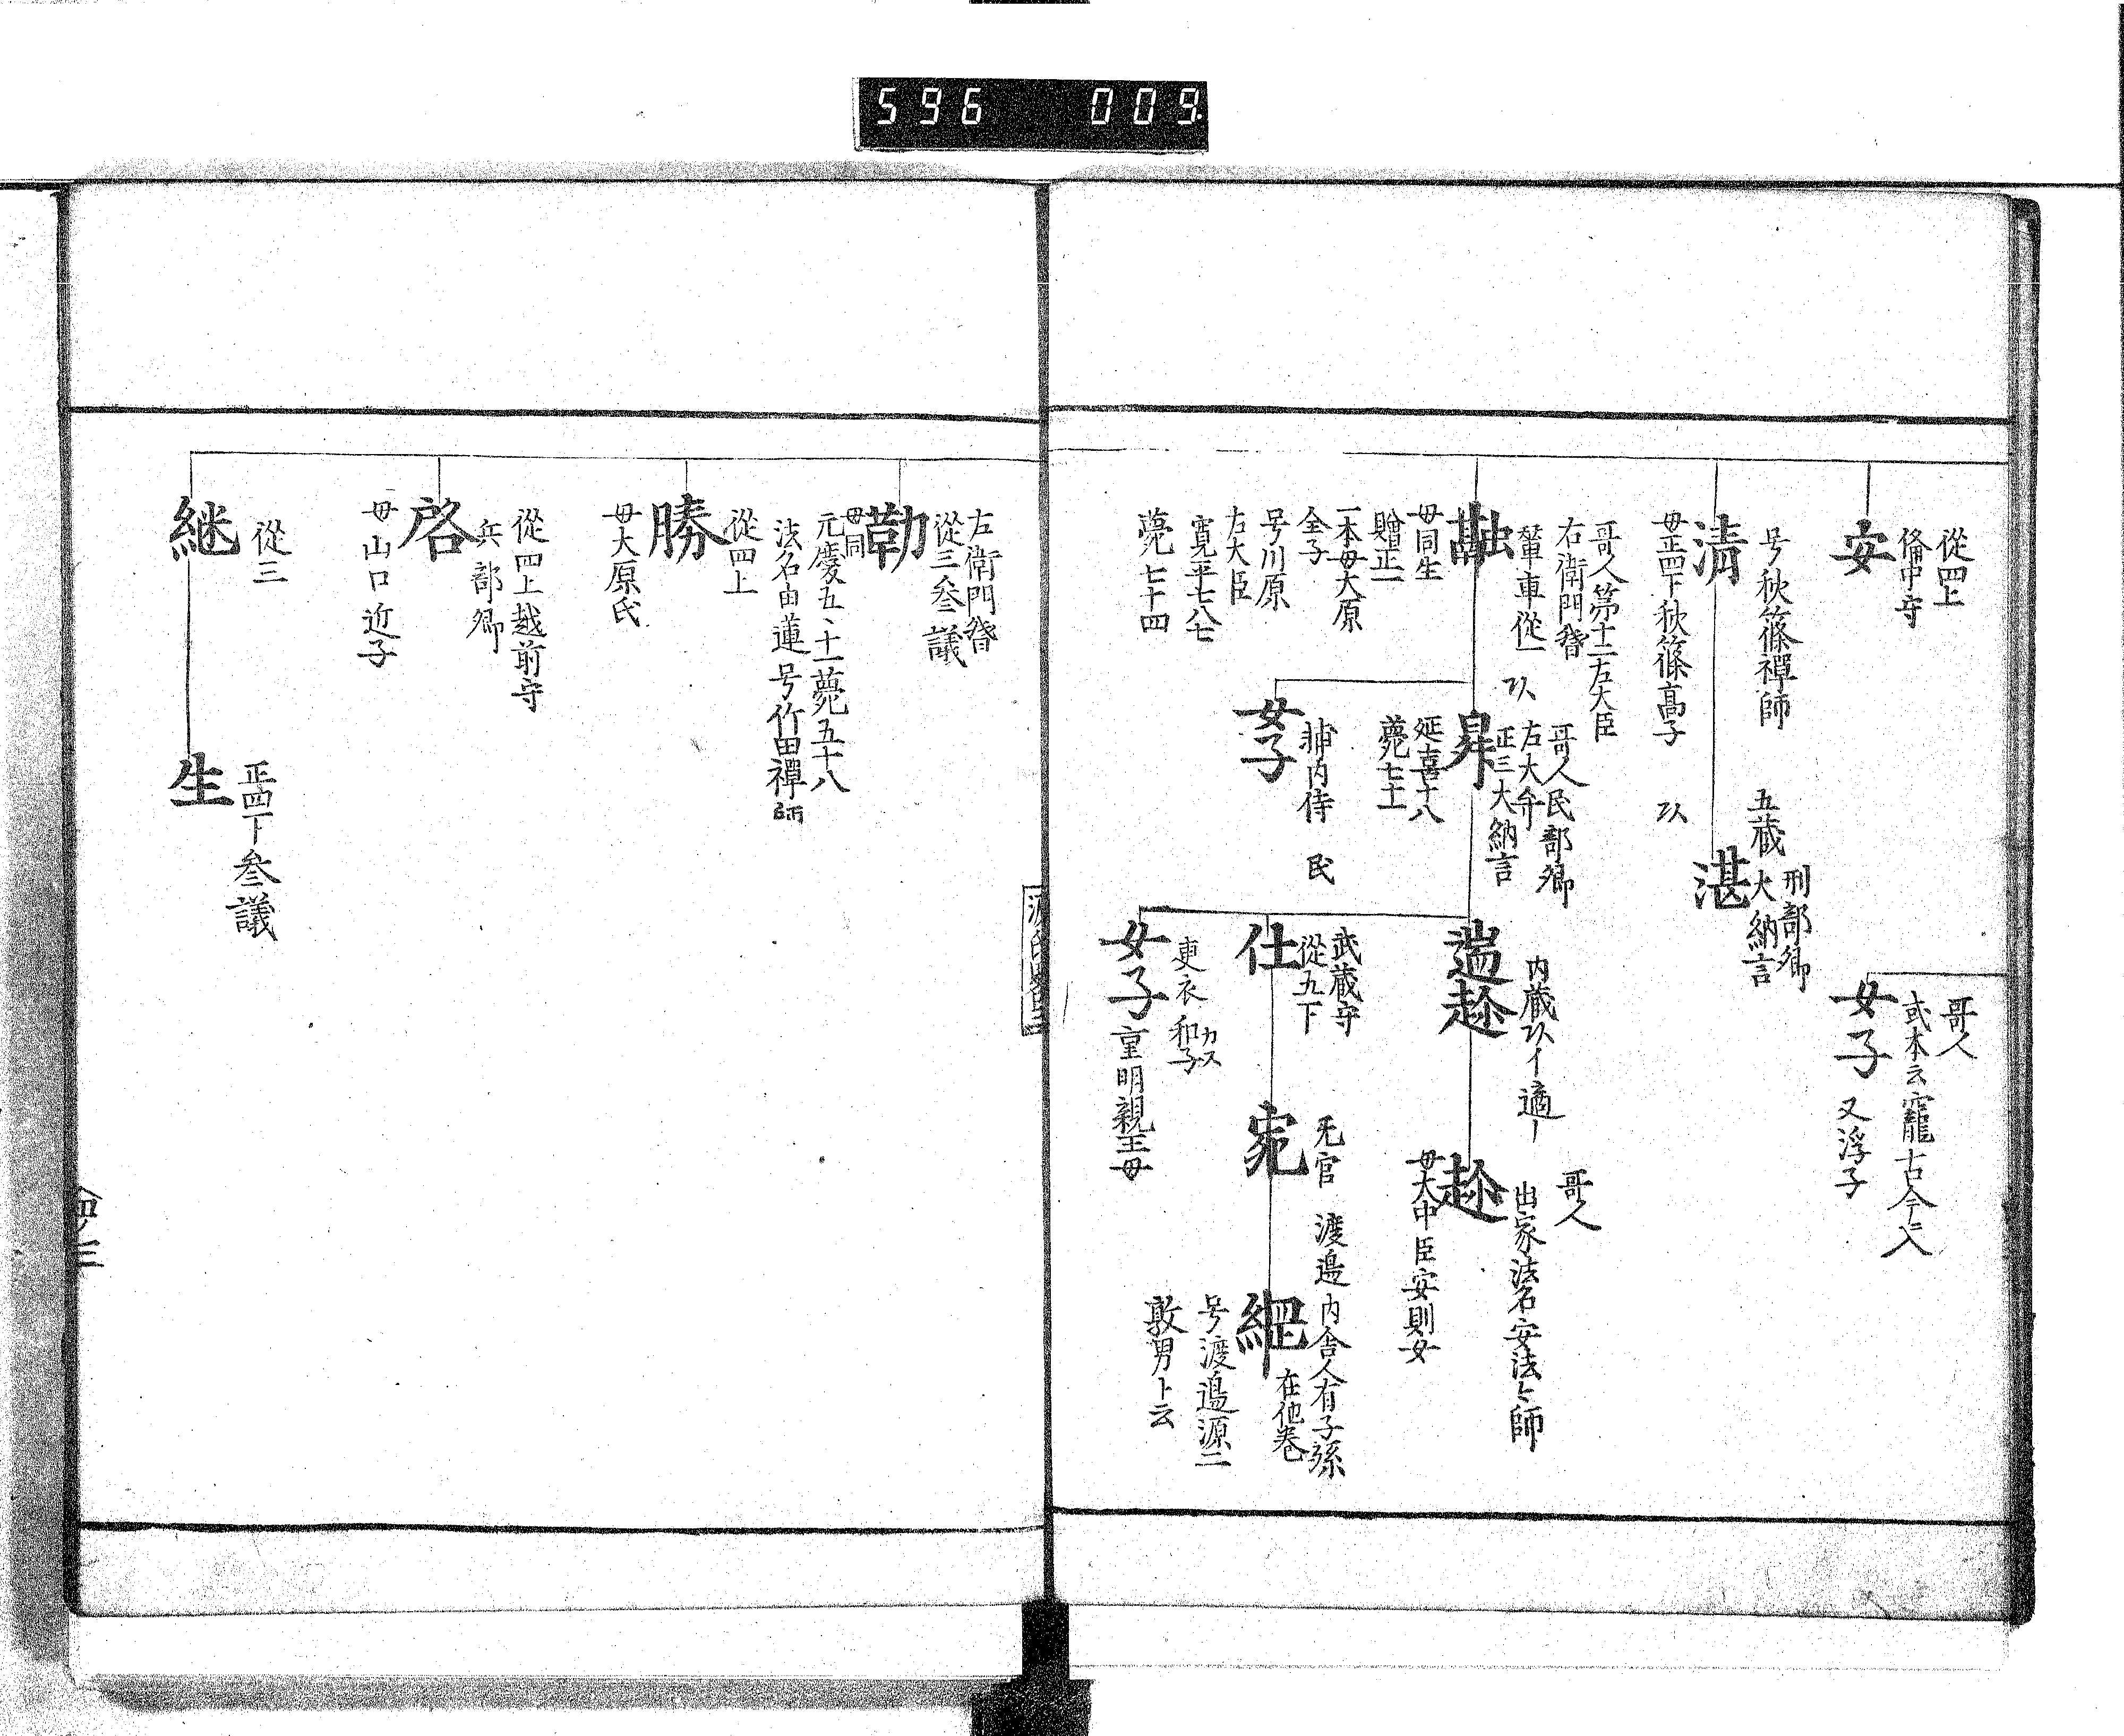 596 009
從四上
備中守
安
哥人
或本云寵古今ニ入
女子 又浮子
号秋篠禪師
清
母正四下秋篠髙子
五蔵 大納言
刑部卿
湛
哥人第十二左大臣
右衛門督
輦車從一
融
母同生
贈正一
一本母大原
全子
号川原
左大臣
寛平七八七
薨七十四
哥人民部卿
左大弁
正三大納言
昇
延喜十八
薨七十一
女子
民
内蔵
適
哥人
出家法名安法〻師
趁
母大中臣安則女
武蔵守
從五下
仕
无官
宛
渡邉
内舎人有子孫
在他巻
綱
号渡邉源二
敦男ト云
更衣 和子
カス
女子
重明親王母
左衛門督
從三叄議
勤
母同
元慶五、十一薨五十八
法名由蓮号竹田禪師
從四上
勝
母大原氏
從四上越前守
兵部卿
啓
母山口近子
從三
継
正四下叄議
生